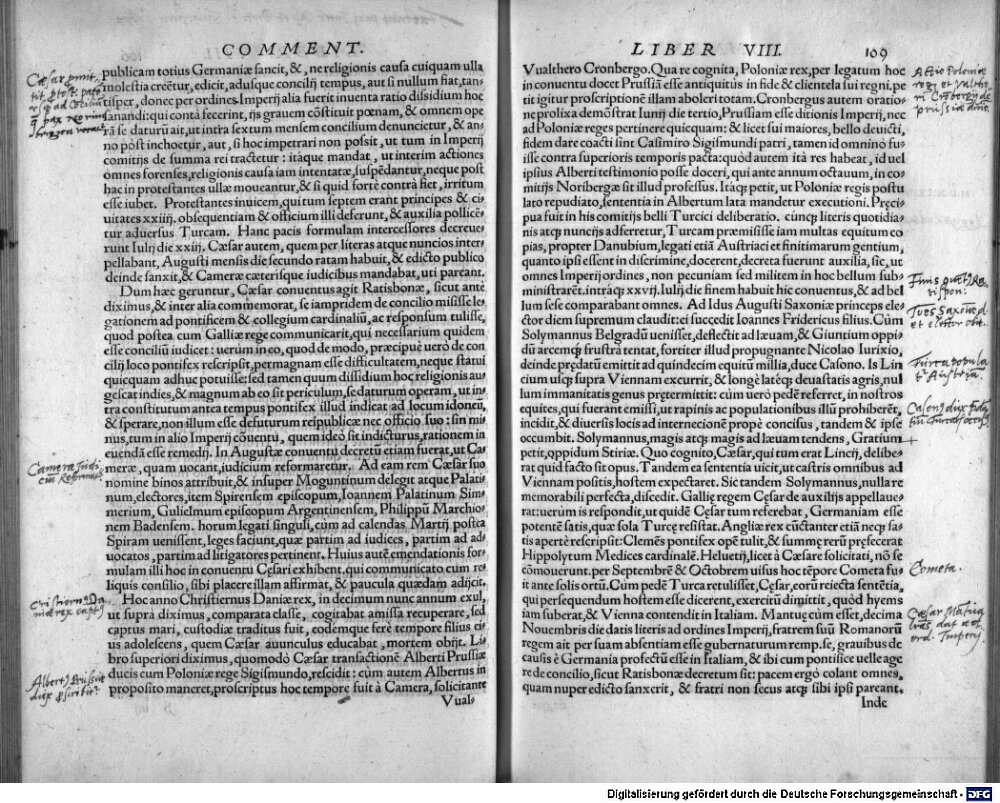 COMMENT.
publicam totius Germaniæ sancit, &, ne religionis causa cuiquam ulla
molestia creētur, edicit, adusque concilij tempus, aut si nullum fiat, tan-
tisper, donec per ordines Imperij alia fuerit inuenta ratio dissidium hoc
sanandi: qui contà fecerint, ijs grauem cōstituit pœnam, & omnem ope
rā se daturū ait, ut intra sextum mensem concilium denuncietur, & an-
no pòst inchoetur, aut, si hoc impetrari non possit, ut tum in Imperij
comitijs de summa rei tractetur: itáque mandat, ut interim actiones
omnes forenses, religionis causa iam intentatæ, suspēdantur, neque post
hac in protestantes ullæ moueantur, & si quid fortè contrà fiet, irritum
esse iubet. Protestantes inuicem, qui tum septem erant principes & ci-
uitates xxiiij. obsequentiam & officium illi deferunt, & auxilia pollicē-
tur aduersus Turcam. Hanc pacis formulam intercessores decreue-
runt Iulij die xxij. Cæsar autem, quem per literas atque nuncios inter-
pellabant, Augusti mensis die secundo ratam habuit, & edicto publico
deinde sanxit, & Cameræ cæterisque iudicibus mandabat, uti pareant.
Dum hæc geruntur, Cæsar conuentus agit Ratisbonæ, sicut antè
diximus, & inter alia commemorat, se iampridem de concilio misisse le-
gationem ad pontificem & collegium cardinaliū, ac responsum tulisse,
quod postea cum Galliæ rege communicarit, qui necessarium quidem
esse conciliū iudicet: uerùm in eo, quod de modo, præcipuè uerò de con-
cilij loco pontifex rescripsit, permagnam esse difficultatem, neque statui
quicquam adhuc potuisse: sed tamen quum dissidium hoc religionis au-
gescat indies, & magnum ab eo sit periculum, se daturum operam, ut in-
tra constitutum antea tempus pontifex illud indicat ad locum idoneū,
& sperare, non illum esse defuturum reipublicæ nec officio suo: sin mi-
nus, tum in alio Imperij cōuentu, quem ideò sit indicturus, rationem in
eundā esse remedij. In Augustæ conuentu decretū etiam fuerat, ut Ca-
meræ, quam uocant, iudicium reformaretur. Ad eam rem Cæsar suo
nomine binos attribuit, & insuper Moguntinum delegit atque Palati-
num, electores, item Spirensem episcopum, Ioannem Palatinum Sim-
merium, Gulielmum episcopum Argentinensem, Philippū Marchio-
nem Badensem. horum legati singuli, cùm ad calendas Martij postea
Spiram uenissent, leges faciunt, quæ partim ad iudices, partim ad ad-
uocatos, partim ad litigatores pertinent. Huius autē emendationis for-
mulam illi hoc in conuentu Cęsari exhibent, qui communicato cum re-
liquis consilio, sibi placere illam affirmat, & paucula quædam adijcit.
Hoc anno Christiernus Daniæ rex, in decimum nunc annum exul,
ut suprà diximus, comparata classe, cogitabat amissa recuperare, sed
captus mari, custodiæ traditus fuit, eodemque ferè tempore filius ei-
us adolescens, quem Cæsar auunculus educabat, mortem obijt. Li-
bro superiori diximus, quomodò Cæsar transactionē Alberti Prussiæ
ducis cum Poloniæ rege Sigismundo, rescidit: cùm autem Albertus in
proposito maneret, proscriptus hoc tempore fuit à Camera, solicitante
Vual-
Camera Iudi-
cij Reformat.
LIBER VIII. 109
Vualthero Cronbergo. Qua re cognita, Poloniæ rex, per legatum hoc
in conuentu docet Prussiā esse antiquitùs in fide & clientela sui regni. pe
tit igitur proscriptionē illam aboleri totam. Cronbergus autem oratio-
ne prolixa demōstrat Iunij die tertio, Prussiam esse ditionis Imperij, nec
ad Poloniæ reges pertinere quicquam: & licet sui maiores, bello deuicti,
fidem dare coacti sint Casimiro Sigismundi patri, tamen id omninò fu-
isse contra superioris temporis pacta: quòd autem ità res habeat, id uel
ipsius Alberti testimonio posse doceri, qui ante annum octauum, in co-
mitijs Noribergæ sit illud professus. Itáq; petit, ut Poloniæ regis postu
lato repudiato, sententia in Albertum lata mandetur executioni. Pręci-
pua fuit in his comitijs belli Turcici deliberatio. cúnq; literis quotidia-
nis atq; nuncijs adferretur, Turcam præmisisse iam multas equitum co
pias, propter Danubium, legati etiā Austriaci et finitimarum gentium,
quanto ipsi essent in discrimine, docerent, decreta fuerunt auxilia, sic, ut
omnes Imperij ordines, non pecuniam sed militem in hoc bellum sub-
ministrarēt. intráq; xxvij. Iulij die finem habuit hic conuentus, & ad bel
lum sese comparabant omnes. Ad Idus Augusti Saxoniæ princeps ele-
ctor diem supremum claudit: ei succedit Ioannes Fridericus filius. Cùm
Solymannus Belgradū uenisset, deflectit ad læuam, & Giuntium oppi-
dū arcemq; frustrà tentat, fortiter illud propugnante Nicolao Iurixio,
deinde prędatū emittit ad quindecim equitū millia, duce Casono. Is Lin
cium usq; supra Viennam excurrit, & longè latéq; deuastatis agris, nul
lum immanitatis genus prętermittit: cùm uerò pedē referret, in nostros
equites, qui fuerant emissi, ut rapinis ac populationibus illū prohiberēt,
incidit, & diuersis locis ad internecionē propè concisus, tandem & ipse
occumbit. Solymannus, magis atq; magis ad læuam tendens, Gratium
petit, oppidum Stiriæ. Quo cognito, Cæsar, qui tum erat Lincij, delibe-
rat quid facto sit opus. Tandem ea sententia uicit, ut castris omnibus ad
Viennam positis, hostem expectaret. Sic tandem Solymannus, nulla re
memorabili perfecta, discedit. Gallię regem Cęsar de auxilijs appellaue-
rat: uerùm is respondit, ut quidē Cęsar tum referebat, Germaniam esse
potentē satis, quæ sola Turcę resistat. Angliæ rex cūctanter etiā neq; sa-
tis apertè rescripsit: Clemēs pontifex opē tulit, & summę rerū pręfecerat
Hippolytum Medices cardinalē. Heluetij, licèt à Cæsare solicitati, nō se
cōmouerunt. per Septembrē & Octobrem uisus hoc tēpore Cometa fu-
it ante solis ortū. Cùm pedē Turca retulisset, Cęsar, eorū reiecta sentētia,
qui persequendum hostem esse dicerent, exercitū dimittit, quòd hyems
iam suberat, & Vienna contendit in Italiam. Mantuę cùm esset, decima
Nouembris die datis literis ad ordines Imperij, fratrem suū Romanorū
regem ait per suam absentiam esse gubernaturum remp. se, grauibus de
causis è Germania profectū esse in Italiam, & ibi cum pontifice uelle age
re de concilio, sicut Ratisbonæ decretum sit: pacem ergò colant omnes,
quam nuper edicto sanxerit, & fratri non secus atq; sibi ipsi pareant.
Inde
Cometa.
Digitalisierung gefördert durch die Deutsche Forschungsgemeinschaft - DFG